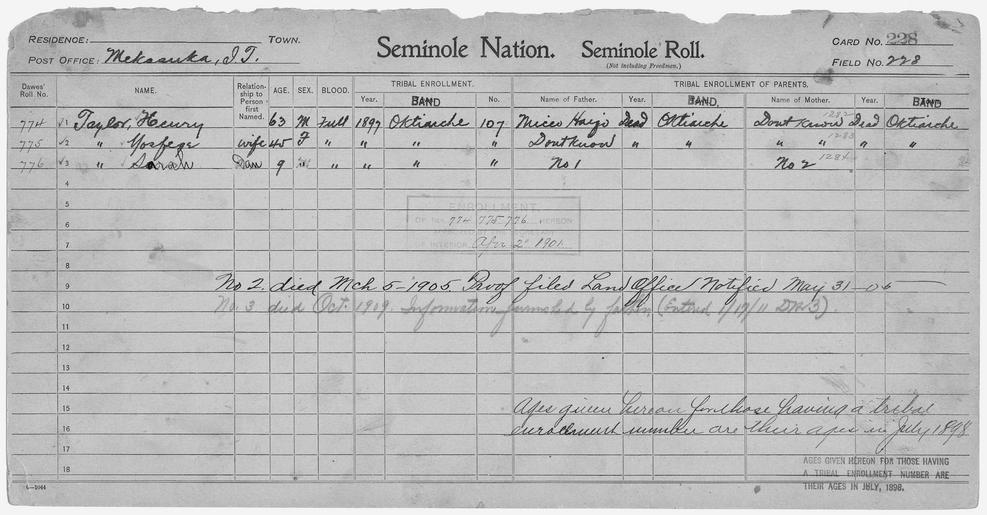 RESIDENCE: TOWN.
POST OFFICE: Mekasuka, I.T.
Seminole Nation. Seminole Roll.
(Not including Freedmen.)
CARD NO. 228
FIELD NO. 228
Dawes' Roll No. NAME. Relationship to Person first Named. AGE. SEX. BLOOD. TRIBAL ENROLLMENT. TRIBAL ENROLLMENT OF PARENTS.
Year. BAND No. Name of Father. Year. BAND. Name of Mother. Year. BAND
774 √1 Taylor, Henry 63 M Full 1897 Oktiarche 107 Micco Harjo Dead Oktiarche Dont Know 1282 Dead Oktiarche
775 √2 " Yosfege wife 45 F " " " " Dont Know " " " " 1283 " "
776 √3 " Sarah Dau 9 " " " " No 1 No 2 1284
4
5
ENROLLMENT
6
OF NOS. 774 775-776 HEREON
7
OF INTERIOR Apr 2" 1901
8
9 No 2. died Mch 5-1905 Proof filed Land Office Notified May 31-05
10 No. 3 died Oct. 1909. Information furnished by father (Entered 1/19/11 )
11
12
13
14
15 Ages given hereon for those having a tribal
16 enrollment number are their ages in July 1898
17
18
AGES GIVEN HEREON FOR THOSE HAVING
A TRIBAL ENROLLMENT NUMBER ARE
THEIR AGES IN JULY, 1898.
6-1044